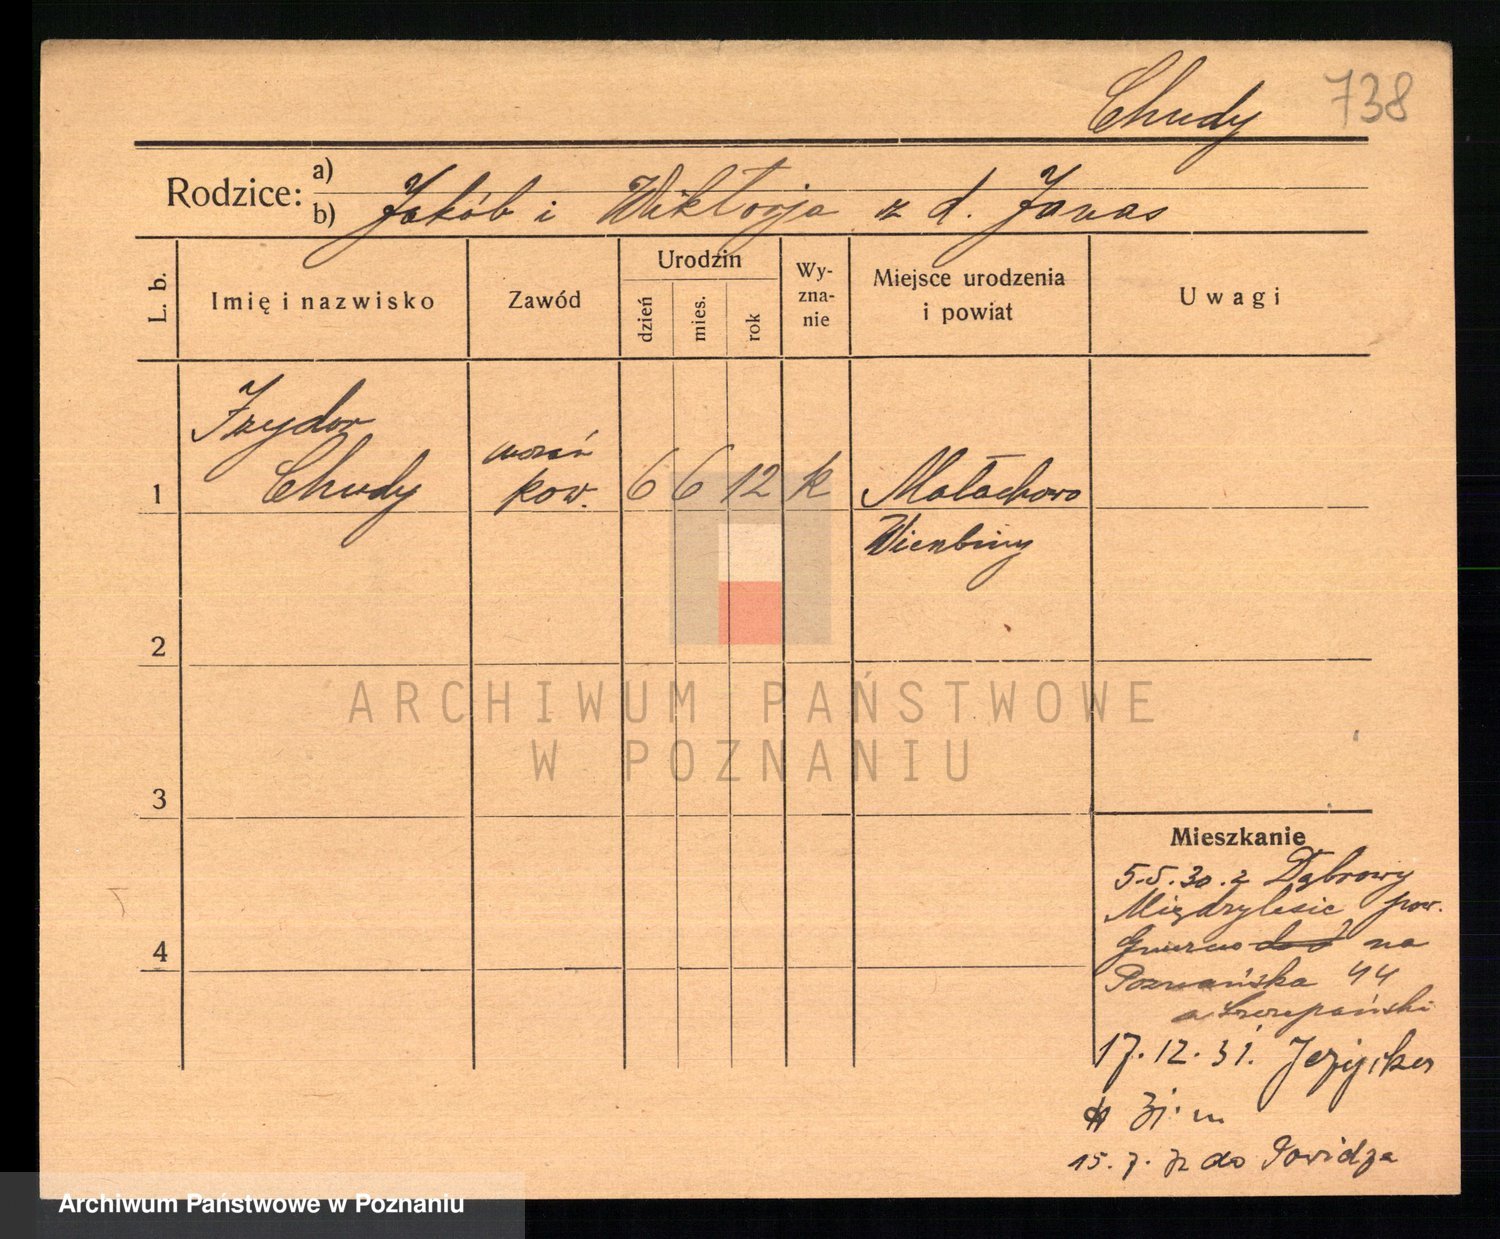 Chudy 738
Rodzice: a)
b) Jakób i Wiktorja z d. Janas
L. b.
Imię i nazwisko
Zawód
Urodzin
dzień
mies.
rok
Wy-
zna-
nie
Miejsce urodzenia
i powiat
Uwagi
Izydor
1 Chudy
kow. 6 6 12 k Małachowo
Wierzbiny
2
3
4
ARCHIWUM PAŃSTWOWE
W POZNANIU
Mieszkanie
5.5.30. z Dąbrowy
Międzylesie pow.
Gniezno na
Poznańska 44
a Szczepański
17.12.31.
15.7. do Powidza
Archiwum Państwowe w Poznaniu